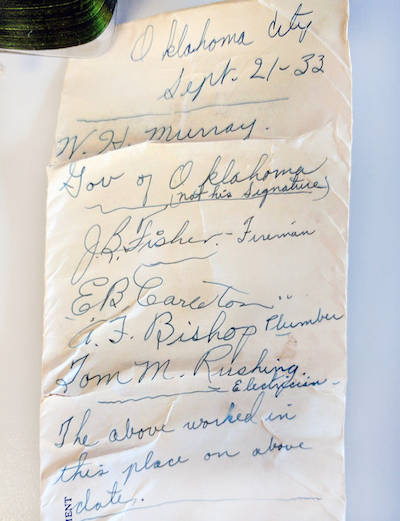 Oklahoma City
Sept. 21-33
W. H. Murray.
Gov of Oklahoma
(not his signature)
J.B. Fisher - Fireman
E.B Careton "
A. F. Bishop Plumber
Tom M. Rushing.
Electrician -
The above worked in
this place on above
date.
MENT